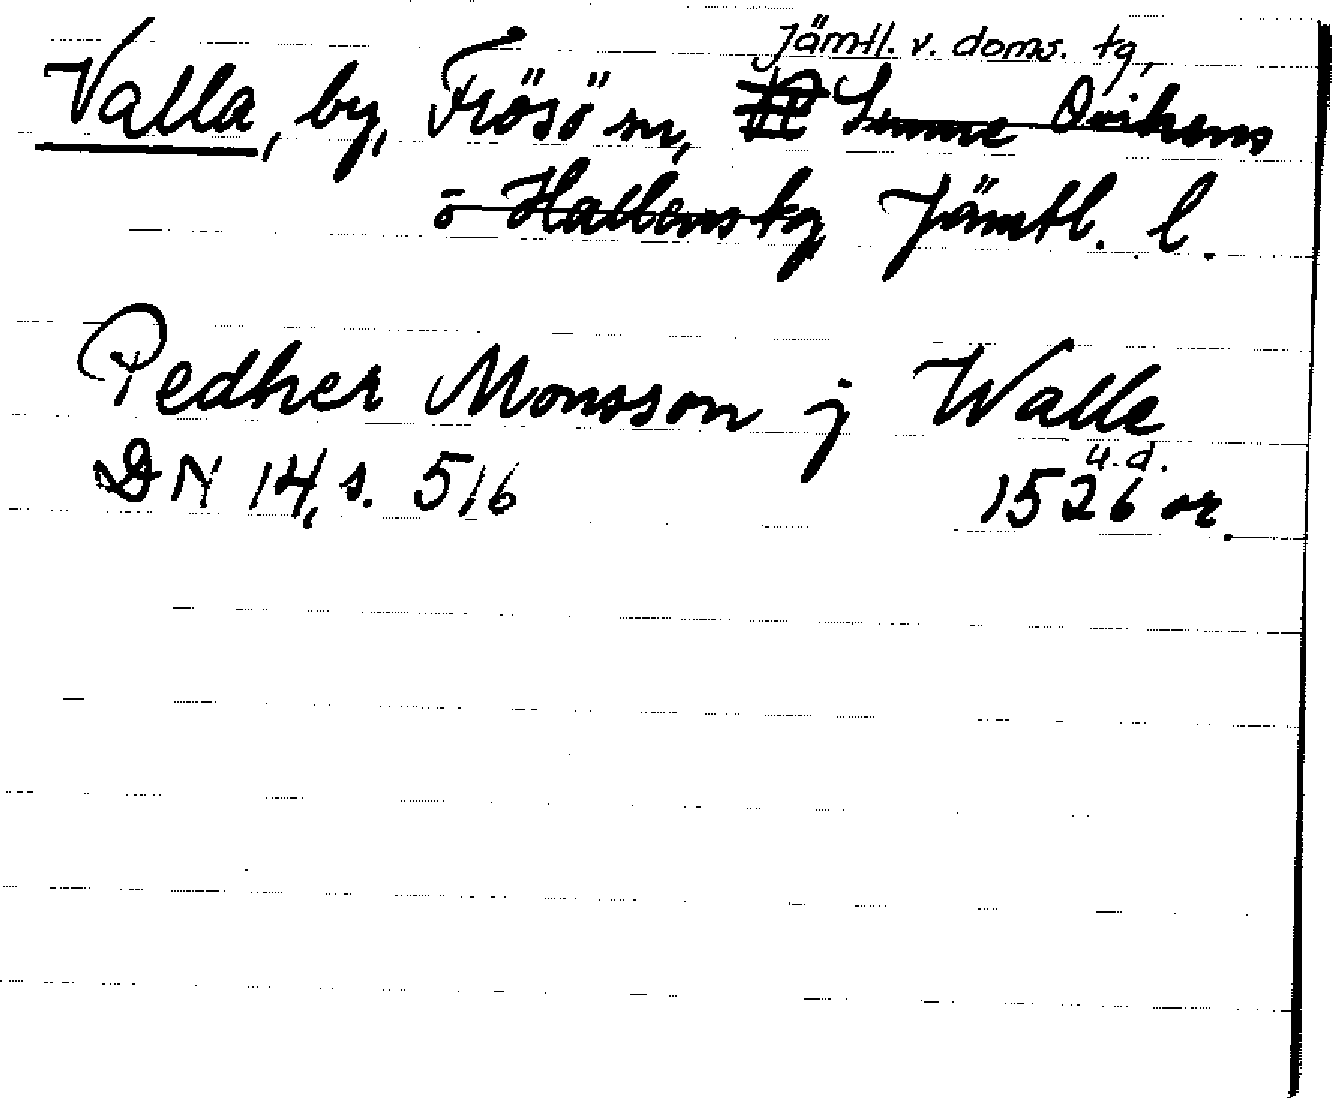 Jämtl. v. doms. tg,
Valla, by, Frösö sn, Sunne Ovikens
o Hallens tg Jämtl. l.
Pedher Monsson j Walle
u.d.
DN 14, s. 516 1526 or.